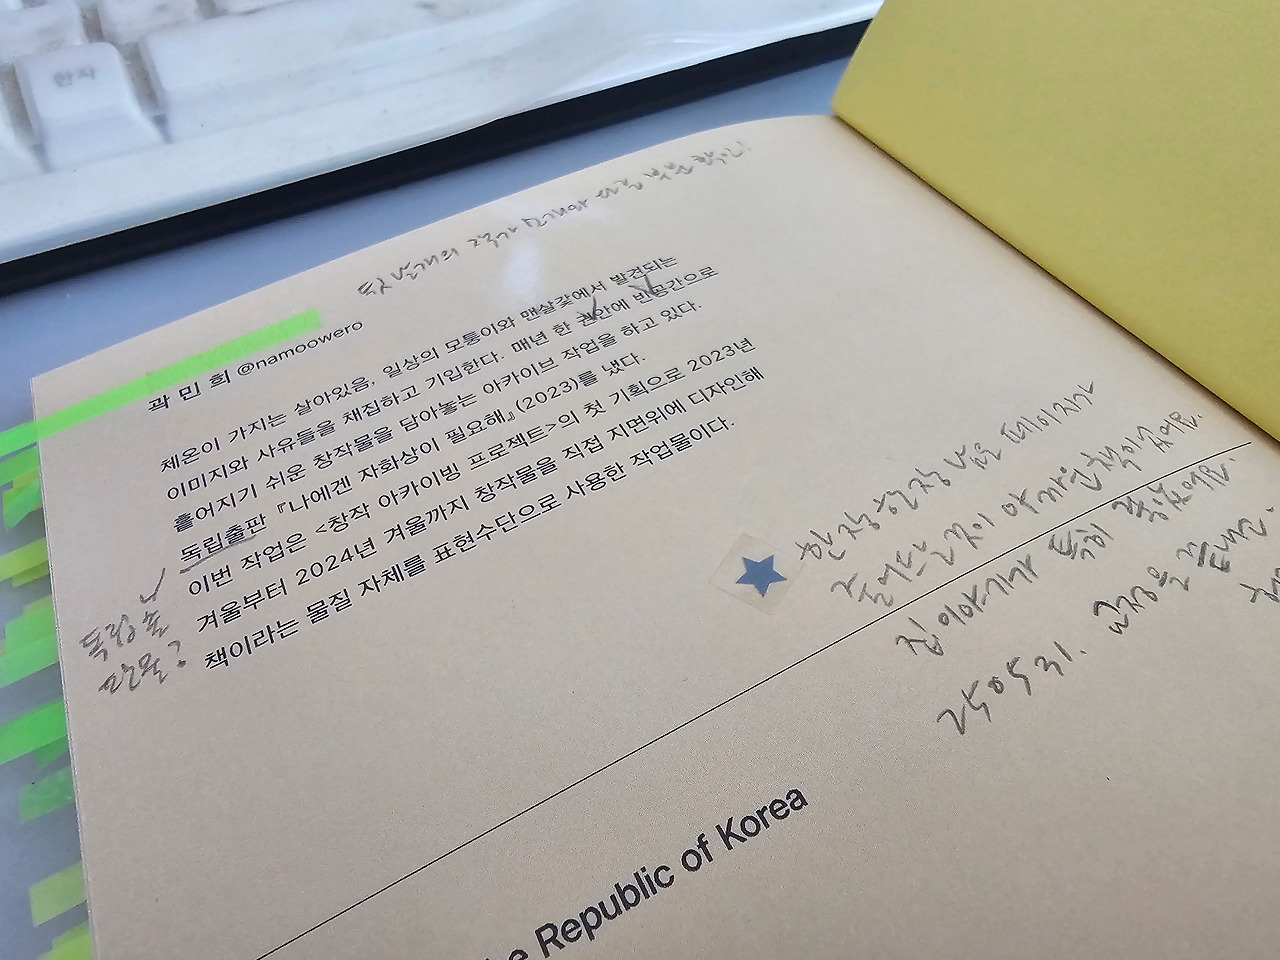 한자
곽 민 희 @namoowero
체온이 가지는 살아있음, 일상의 모퉁이와 맨살갗에서 발견되는
이미지와 사유들을 채집하고 기입한다. 매년 한 권안에 반공간으로
흩어지기 쉬운 창작물을 담아놓는 아카이브 작업을 하고 있다.
독립출판 『나에겐 자화상이 필요해』(2023)를 냈다.
이번 작업은 <창작 아카이빙 프로젝트>의 첫 기획으로 2023년
겨울부터 2024년 겨울까지 창작물을 직접 지면위에 디자인해
책이라는 물질 자체를 표현수단으로 사용한 작업물이다.
독립출
판물?
한장 한장 남은 페이지가
줄어드는 것이 아까운 책이었어요.
집 이야기가 특히 좋았어요.
250531. 교정을 끝내고.
e Republic of Korea